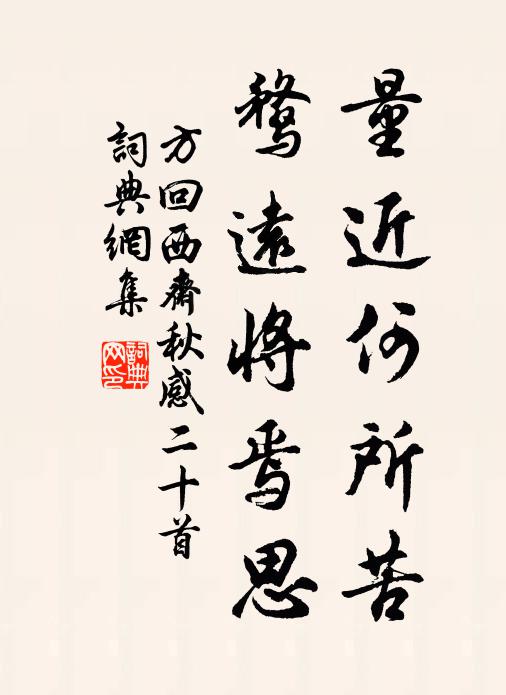 量近何所苦
騖遠將焉思
方回西齋秋感二十首
詞典網集
詞典網印